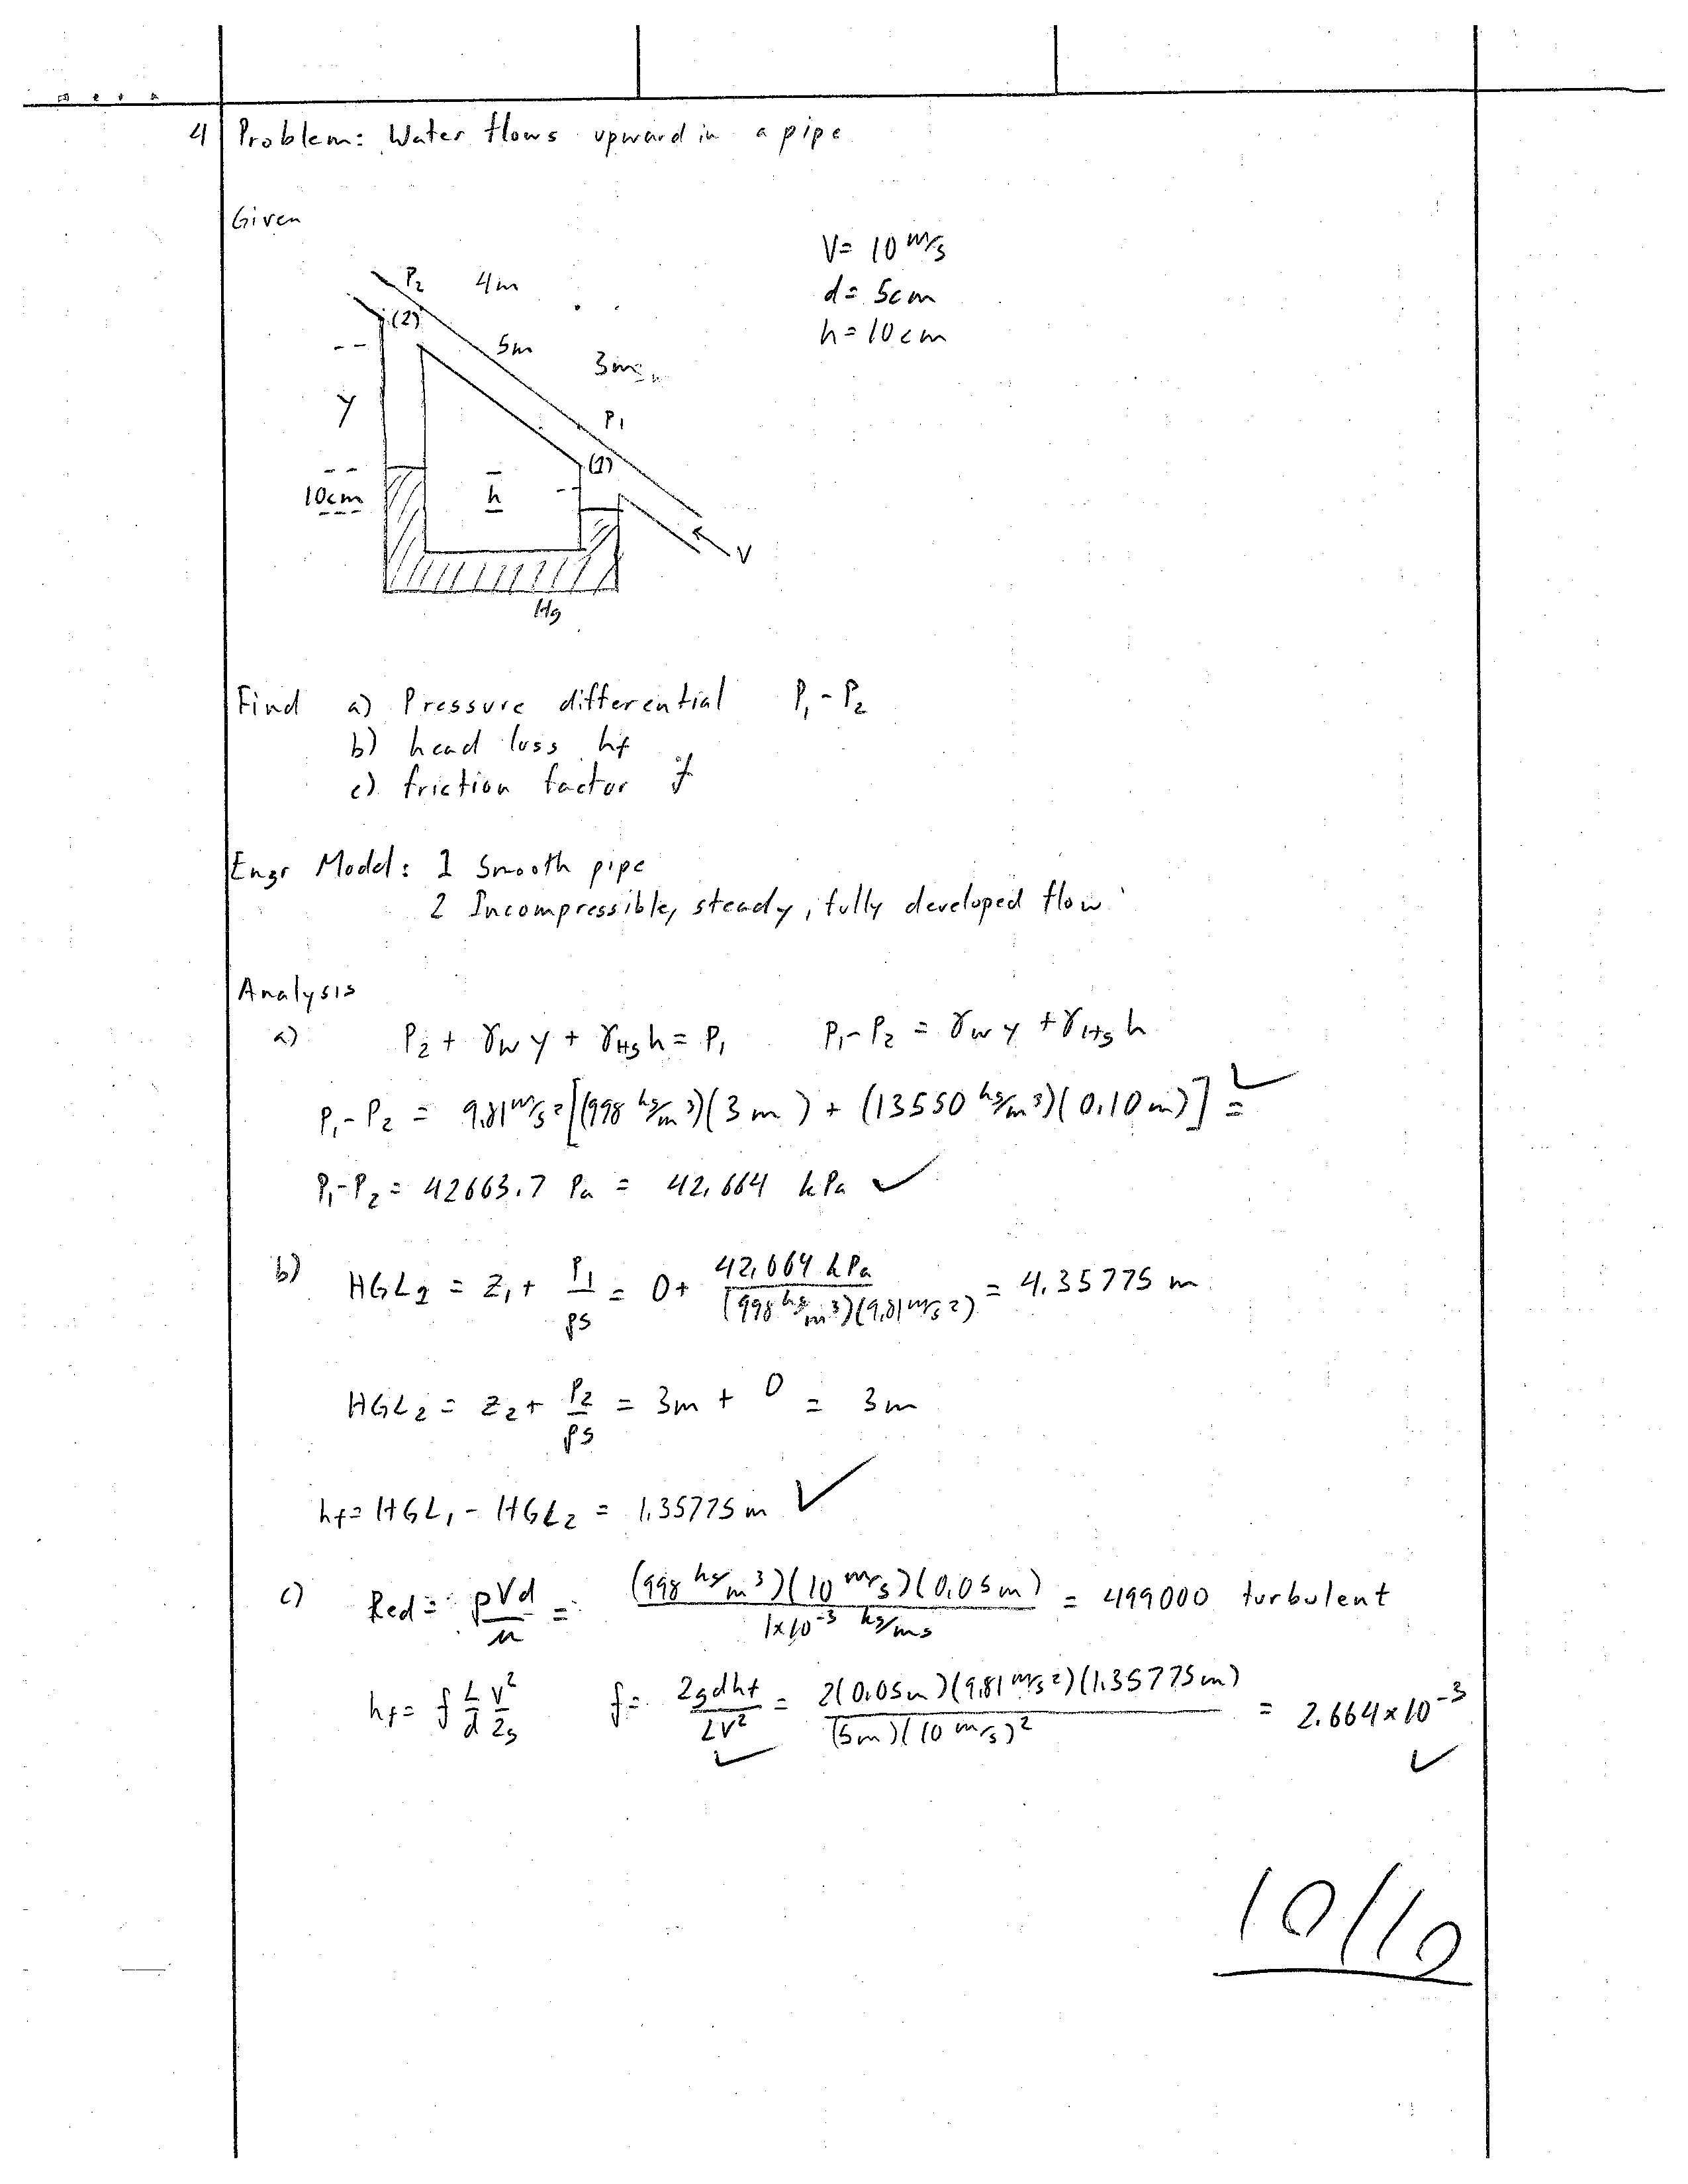 4 Problem: Water flows upward in a pipe
Given
V= 10 m/s
d= 5cm
h=10cm
P2 4m
(2)
5m
3m
y
P1
(1)
10cm
h
V
Hg
Find a) Pressure differential P1-P2
b) head loss hf
c) friction factor f
Engr Model: 1 Smooth pipe
2 Incompressible, steady, fully developed flow
Analysis
a) P2 + γw y + γHg h = P1 P1-P2 = γw y + γHg h
P1-P2 = 9.81 m/s² [(998 kg/m³)(3m) + (13550 kg/m³)(0.10m)] =
P1-P2 = 42663.7 Pa = 42.664 kPa ✓
b) HGL1 = z1 + P1/ρg = 0 + 42.664 kPa/(998 kg/m³)(9.81 m/s²) = 4.35775 m
HGL2 = z2 + P2/ρg = 3m + 0 = 3m
hf = HGL1 - HGL2 = 1.35775m ✓
c) Red = ρVd/μ = (998 kg/m³)(10 m/s)(0.05m)/1×10⁻³ kg/ms = 499000 turbulent
hf = f L/d V²/2g f = 2gdhf/LV² = 2(0.05m)(9.81 m/s²)(1.35775m)/(5m)(10 m/s)² = 2.664×10⁻³
✓ ✓
10/10